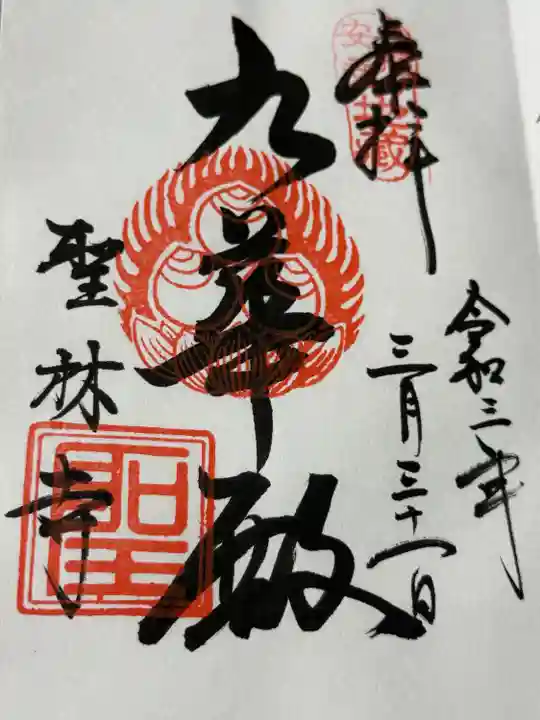 奉拝
令和三年
三月三十一日
九華殿
聖林寺
聖
地藏